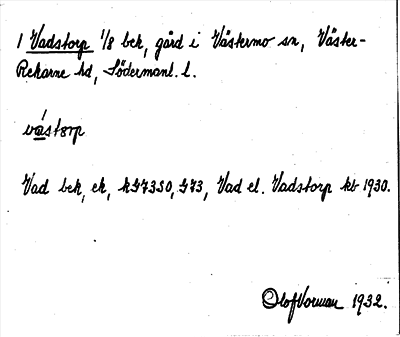 1 Vadstorp 1/8 bek, gård i Västermo sn, Väster-
Rekarne hd, Södermanl. l.
västorp
Vad bek, ek, k G7350, G73, Vad el. Vadstorp kb 1930.
Olof Vorman 1932.